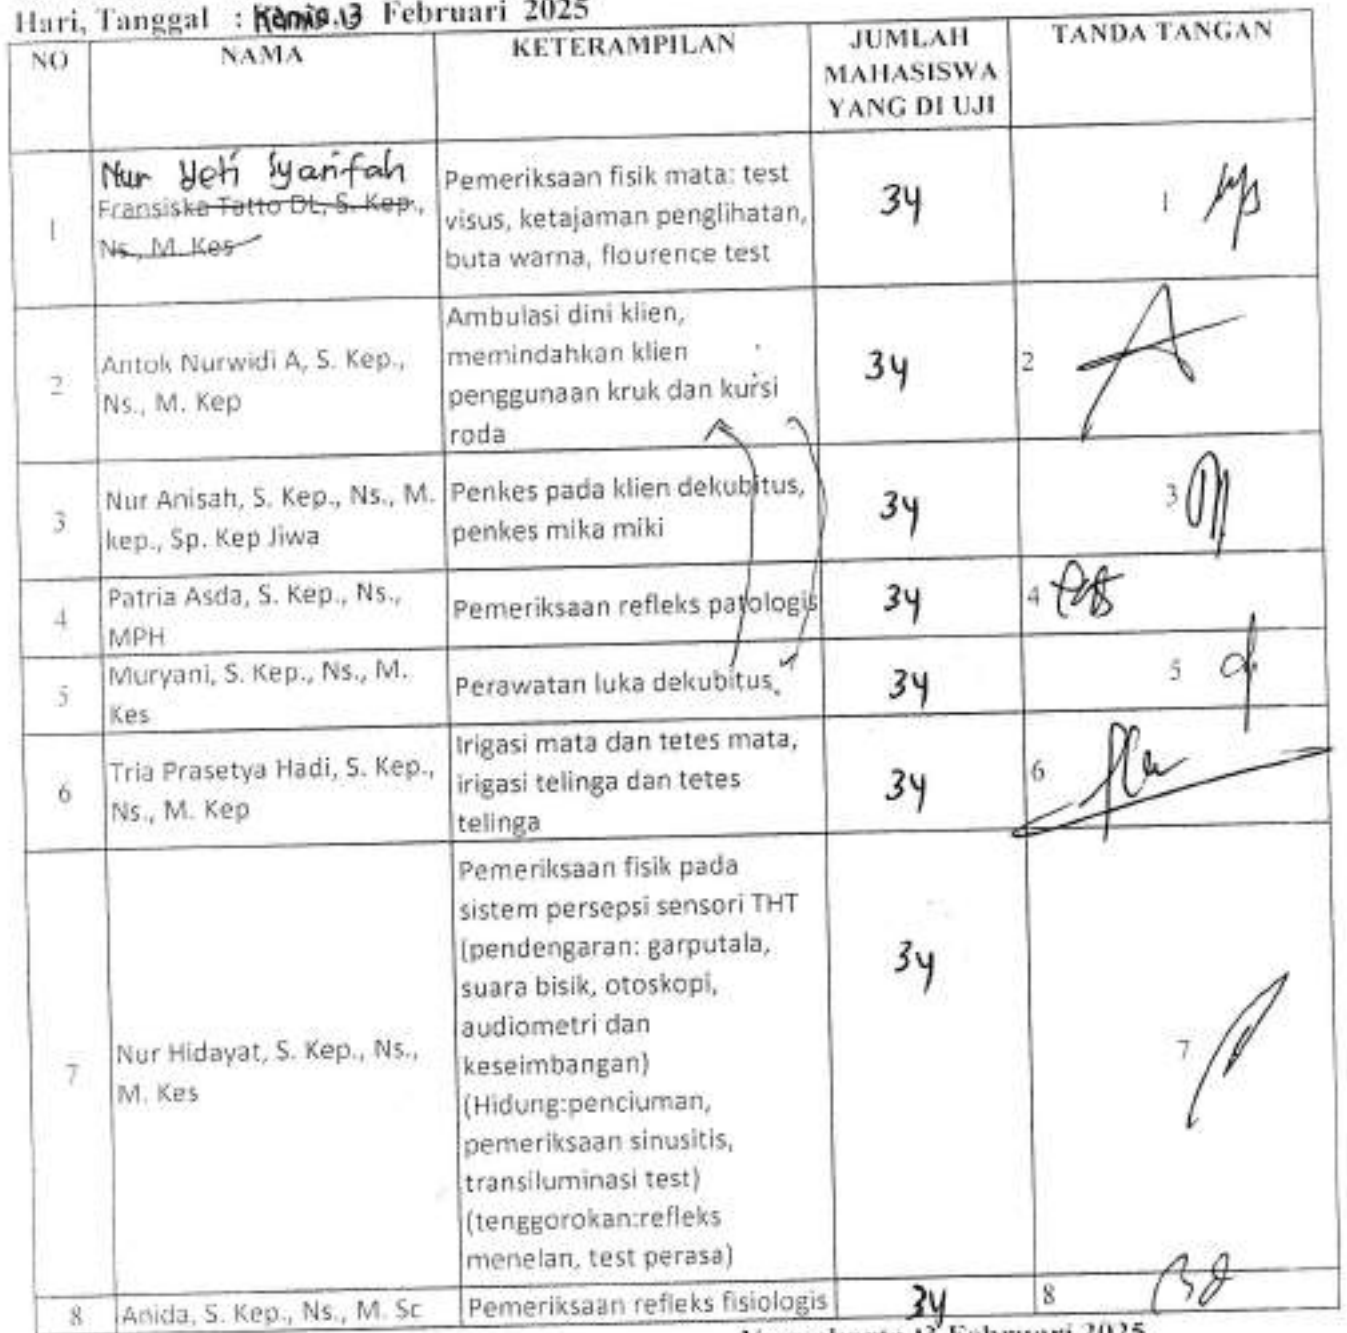 Hari, Tanggal : Kamis, 13 Februari 2025
NO NAMA KETERAMPILAN JUMLAH MAHASISWA YANG DI UJI TANDA TANGAN
1
Nur Yeti Syarifah
Fransiska Tatto DL, S. Kep.,
Ns., M. Kes
Pemeriksaan fisik mata: test
visus, ketajaman penglihatan,
buta warna, flourence test
34
1
2
Antok Nurwidi A, S. Kep.,
Ns., M. Kep
Ambulasi dini klien,
memindahkan klien
penggunaan kruk dan kursi
roda
34
2
3
Nur Anisah, S. Kep., Ns., M.
kep., Sp. Kep Jiwa
Penkes pada klien dekubitus,
penkes mika miki
34
3
4
Patria Asda, S. Kep., Ns.,
MPH
Pemeriksaan refleks patologis
34
4
5
Muryani, S. Kep., Ns., M.
Kes
Perawatan luka dekubitus,
34
5
6
Tria Prasetya Hadi, S. Kep.,
Ns., M. Kep
Irigasi mata dan tetes mata,
irigasi telinga dan tetes
telinga
34
6
7
Nur Hidayat, S. Kep., Ns.,
M. Kes
Pemeriksaan fisik pada
sistem persepsi sensori THT
(pendengaran: garputala,
suara bisik, otoskopi,
audiometri dan
keseimbangan)
(Hidung:penciuman,
pemeriksaan sinusitis,
transiluminasi test)
(tenggorokan:refleks
menelan, test perasa)
34
7
8
Anida, S. Kep., Ns., M. Sc
Pemeriksaan refleks fisiologis
34
8
13 Februari 2025